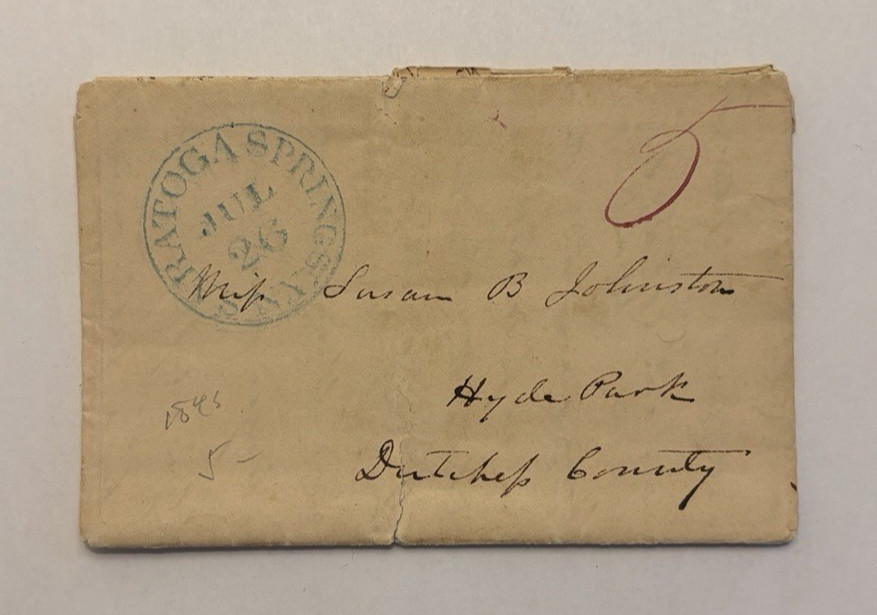 SARATOGA SPRINGS N.Y.
JUL
26
5
Miss Susan B Johnston
Hyde Park
Dutchess County
1845
5-